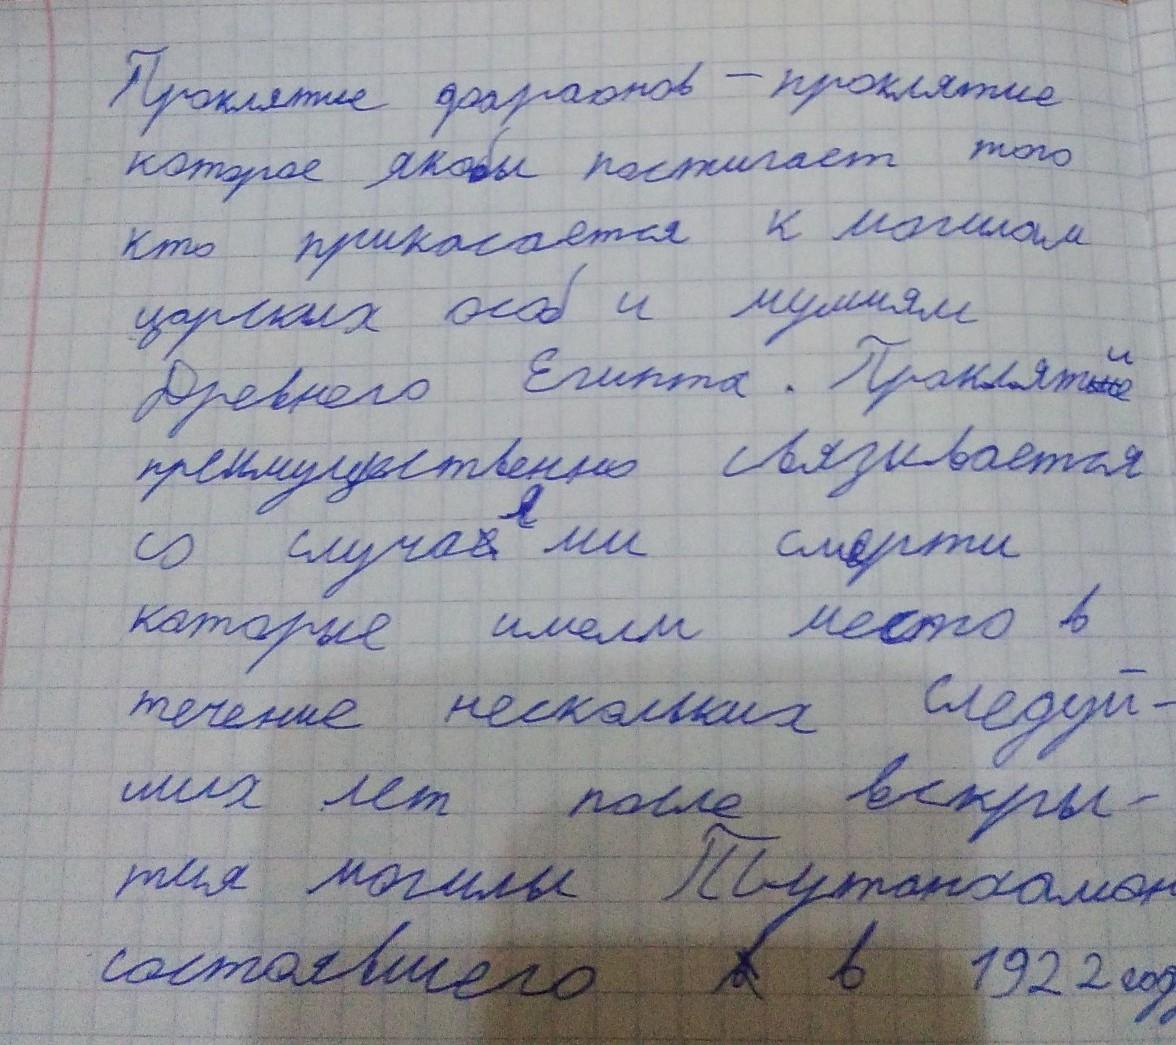 Проклятие фараонов – проклятие
которое якобы постигает того
кто прикасается к могилам
царских особ и мумиям
Древнего Египта. Проклятие
преимущественно связивается
со случаями смерти
которые имели место в
течение нескольких следуй-
ших лет после вскры-
тия могилы Тутанхамон
состоявшего в 1922 год